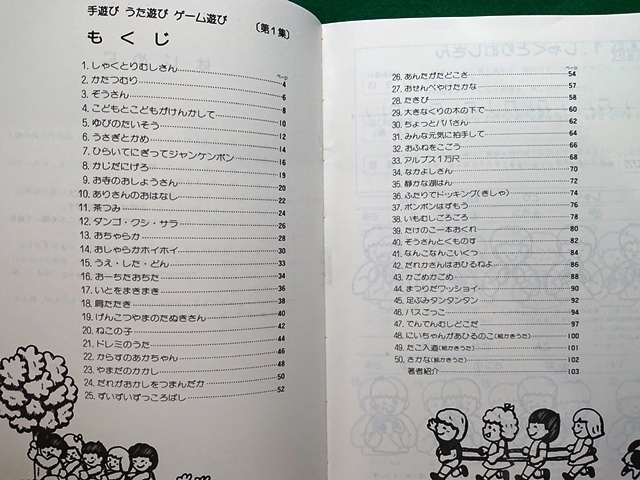 手遊び うた遊び ゲーム遊び
〔第1集〕
もくじ
ページ
1. しゃくとりむしさん 4
2. かたつむり 6
3. ぞうさん 8
4. こどもとこどもがけんかして 10
5. ゆびのたいそう 12
6. うさぎとかめ 14
7. ひらいてにぎってジャンケンポン 16
8. かじだにげろ 19
9. お寺のおしょうさん 20
10. ありさんのおはなし 22
11. 茶つみ 24
12. ダンゴ・ワシ・サラ 26
13. おちゃらか 28
14. おしゃらかホイホイ 30
15. うえ・した・どん 33
16. おーちたおちた 34
17. いとをまきまき 36
18. 肩たたき 38
19. げんこつやまのたぬきさん 40
20. ねこの子 42
21. ドレミのうた 44
22. からすのあかちゃん 46
23. やまだのかかし 48
24. だれがおかしをつまんだか 50
25. ずいずいずっころばし 52
ページ
26. あんたがたどこさ 54
27. おせんべやけたかな 57
28. たきび 58
29. 大きなくりの木の下で 60
30. ちょっとパパさん 62
31. みんな元気に拍手して 64
32. おふねをこごう 66
33. アルプス1万尺 68
34. なかよしさん 70
35. 静かな湖はん 72
36. ふたりでドッキング(きしゃ) 74
37. ポンポンはずもう 76
38. いもむしごろごろ 78
39. たけのこ一本おくれ 80
40. ぞうさんとくものす 82
41. なんこなんこいくつ 84
42. だれかさんはおひるねよ 86
43. かごめかごめ 88
44. まつりだワッショイ 90
45. 足ぶみタンタンタン 92
46. バスごっこ 94
47. でんでんむしどこだ 97
48. にいちゃんがあひるのこ(絵かきうた) 100
49. たこ入道(絵かきうた) 101
50. さかな(絵かきうた) 102
著者紹介 103